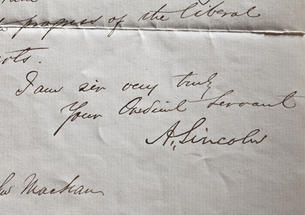 progress of the liberal
rts.
I am sir very truly
Your Obedient Servant
A, Lincoln